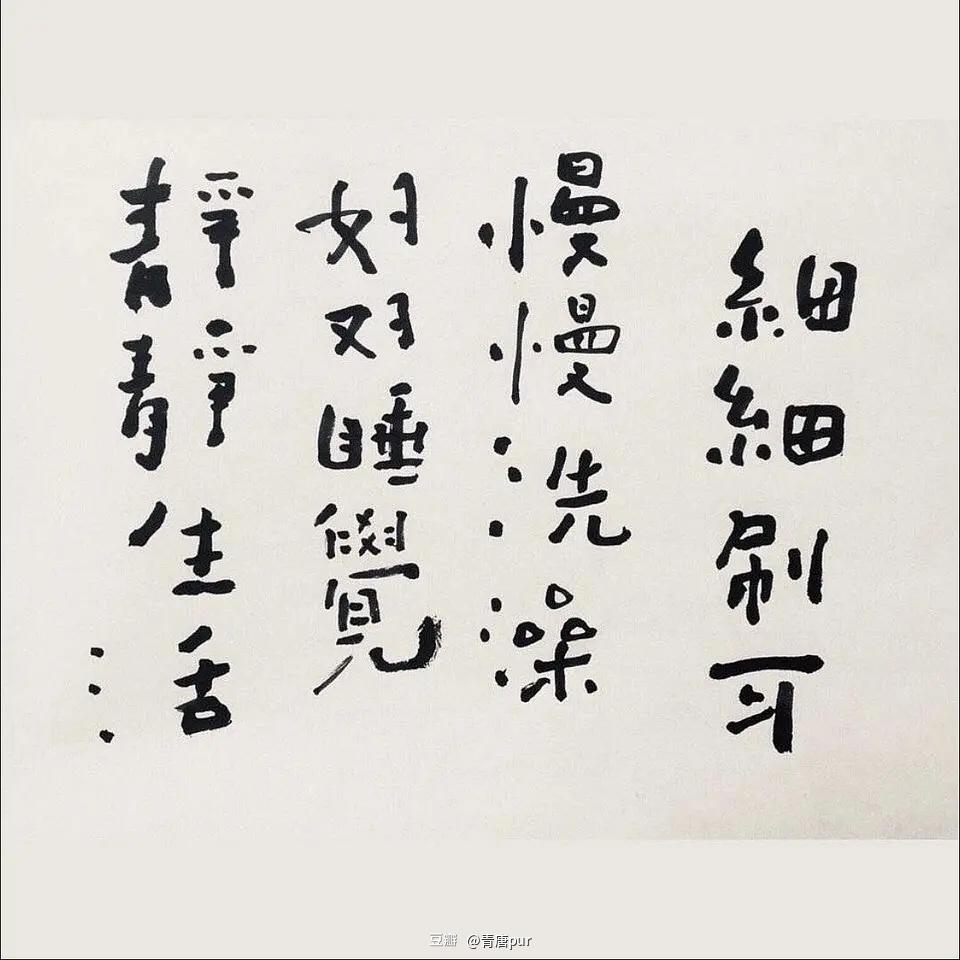 細細刷牙
慢慢洗澡
好好睡覺
靜靜生活
豆瓣 @青唐pur